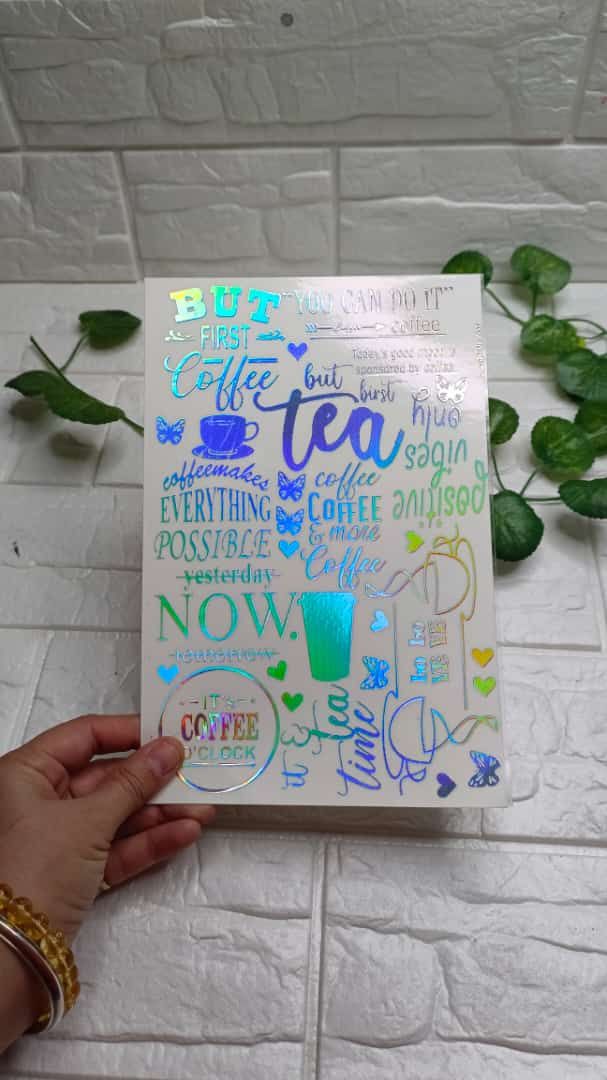 BUT
FIRST
Coffee
"YOU CAN DO IT"
coffee
Today's good mood is
sponsored by coffee
but
first
tea
only
vibes
positive
coffeemakes
EVERYTHING
POSSIBLE
coffee
COFFEE
& more
Coffee
yesterday
NOW.
tomorrow
IT's
COFFEE
O'CLOCK
tea
time